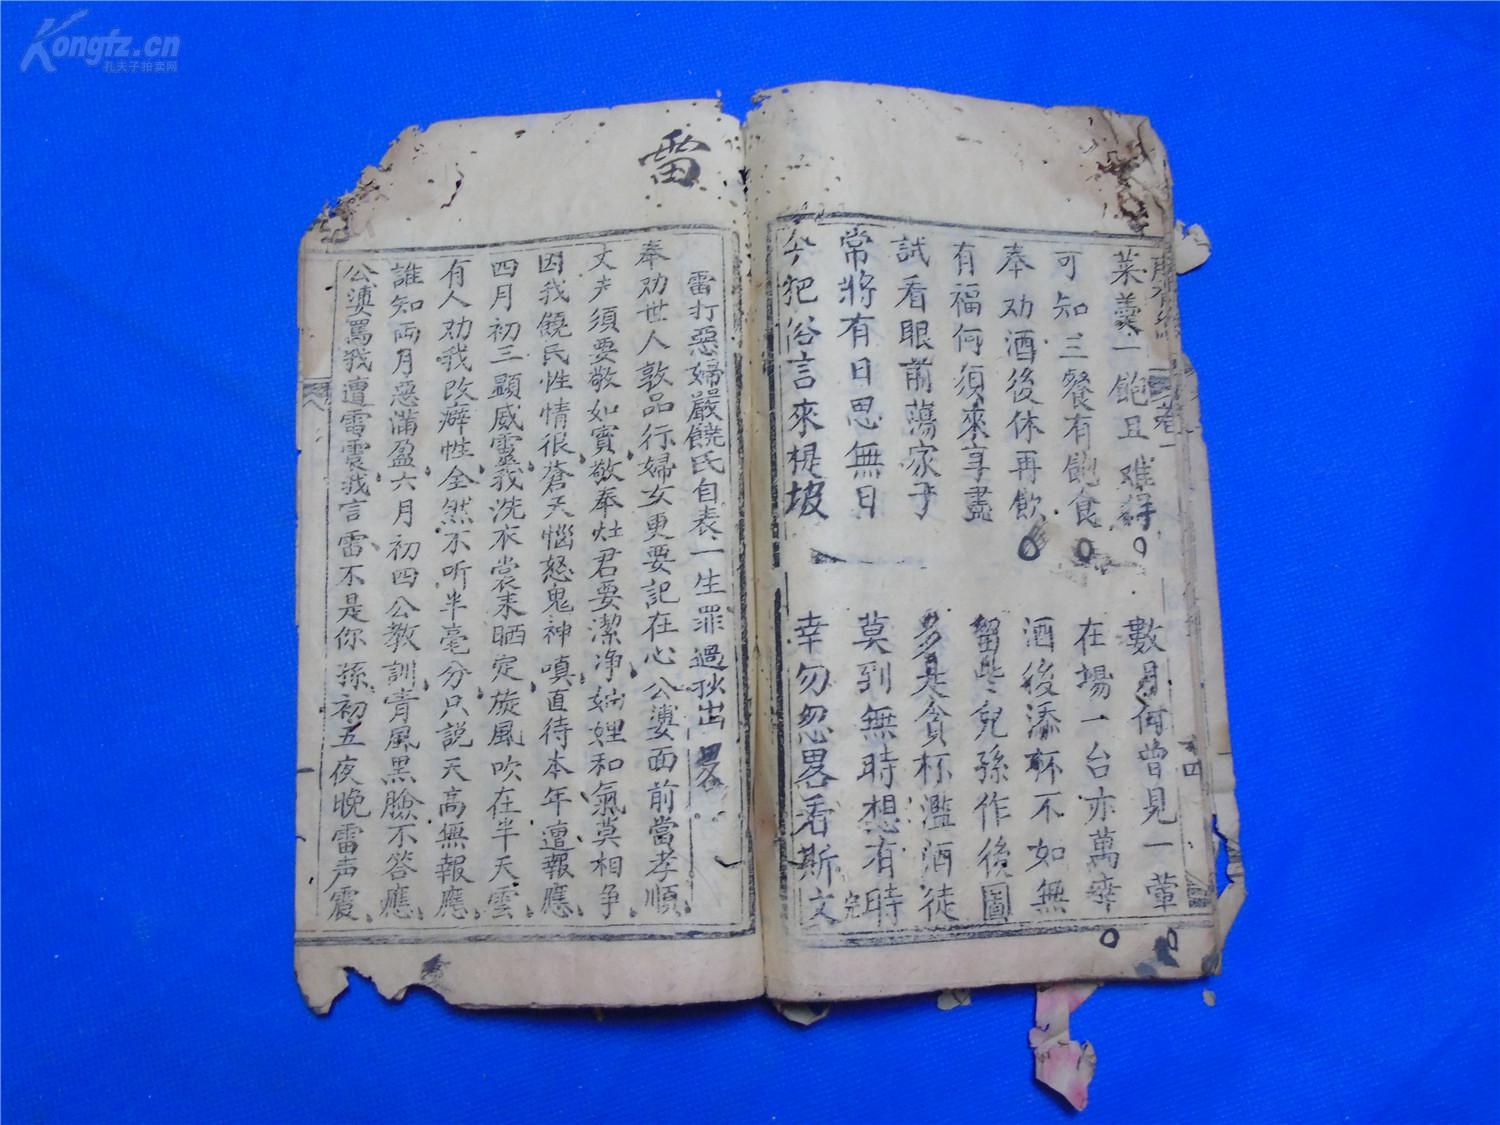 Kongfz.cn
孔夫子拍卖网
菜羹一飽且难得
數月何曾見一葷
可知三餐有飽食
在場一台亦萬幸
奉劝酒後休再飲
酒後添杯不如無
有福何須來享盡
留些兒孫作後圖
試看眼前蕩家子
多是貪杯濫酒徒
常將有日思無日
莫到無時想有時
今把俗言來提坡
幸勿忽畧看斯文
完
雷
雷打惡婦嚴饒氏自表一生罪過抄出
奉劝世人敦品行婦女更要記在心公婆面前當孝順
丈夫須要敬如賓敬奉灶君要潔净妯娌和氣莫相争
因我饒氏性情很蒼天惱怒鬼神嗔直待本年遭報應
四月初三顯威靈我洗衣裳来晒定旋風吹在半天雲
有人劝我改癖性全然不听半毫分只説天高無報應
誰知両月惡滿盈六月初四公教訓青風黑臉不答應
公婆罵我遭雷震我言雷不是你孫初五夜晚雷声震